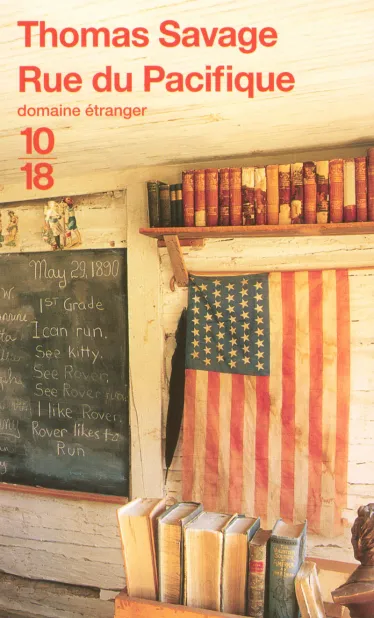 Thomas Savage
Rue du Pacifique
domaine étranger
10
18
May 29, 1890
1ST Grade
I can run.
See kitty.
See Rover.
See Rover run.
I like Rover.
Rover likes to
Run